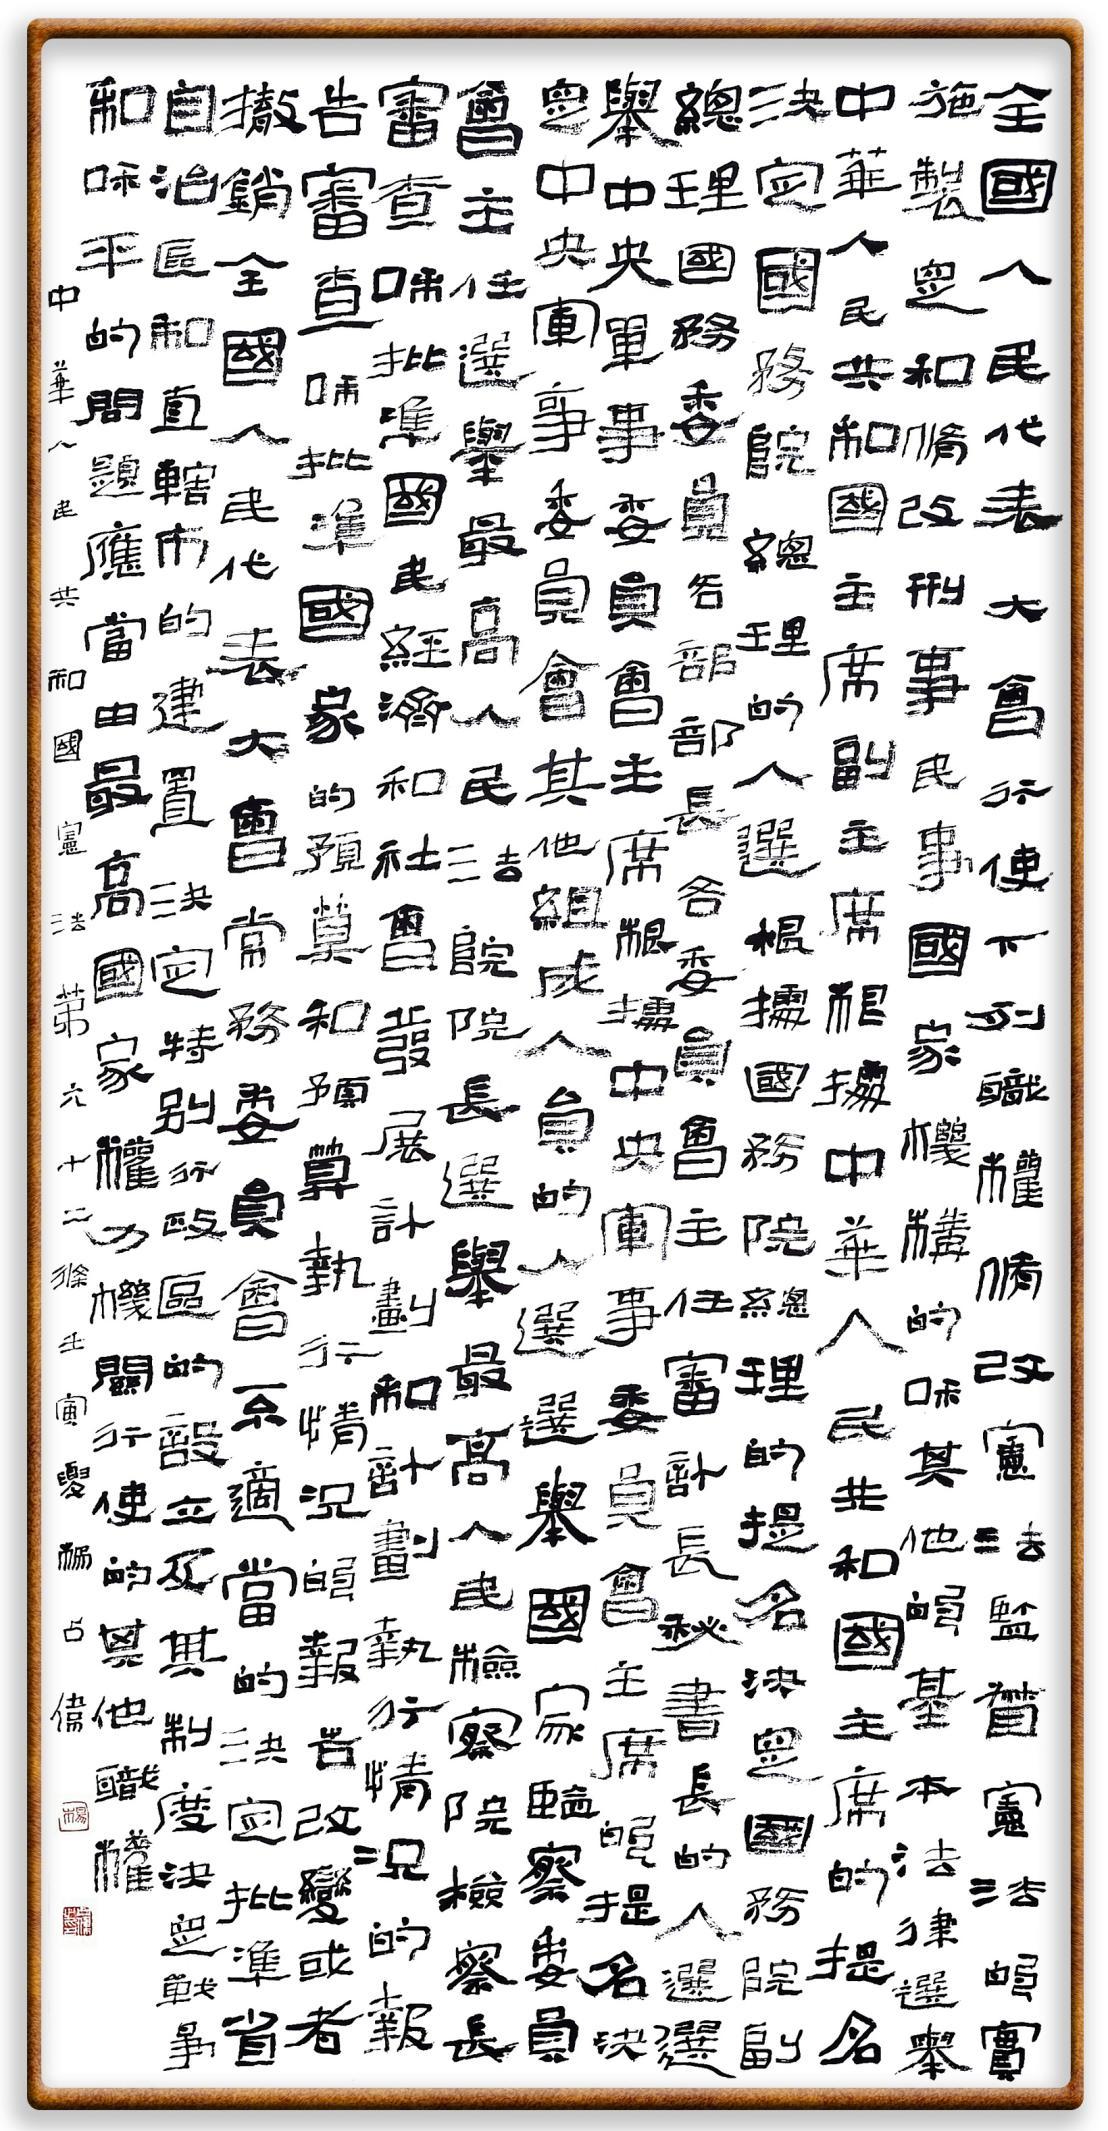 全國人民代表大會行使下列職權脩改憲法監督憲法的實
施製定和脩改刑事民事國家機構的和其他的基本法律選舉
中華人民共和國主席副主席根據中華人民共和國主席的提名
決定國務院總理的人選根據國務院總理的提名決定國務院副
總理國務委員各部部長各委員會主任審計長秘書長的人選選
舉中央軍事委員會主席根據中央軍事委員會主席的提名決
定中央軍事委員會其他組成人員的人選選舉國家監察委員
會主任選舉最高人民法院院長選舉最高人民檢察院檢察長
審查和批準國民經濟和社會發展計劃和計劃執行情況的報
告審查和批準國家的預算和預算執行情況的報告改變或者
撤銷全國人民代表大會常務委員會不適當的決定批準省
自治區和直轄市的建置決定特別行政區的設立及其制度決定戰爭
和和平的問題應當由最高國家權力機關行使的其他職權
中華人民共和國憲法第六十二條壬寅夏楊占偉
楊